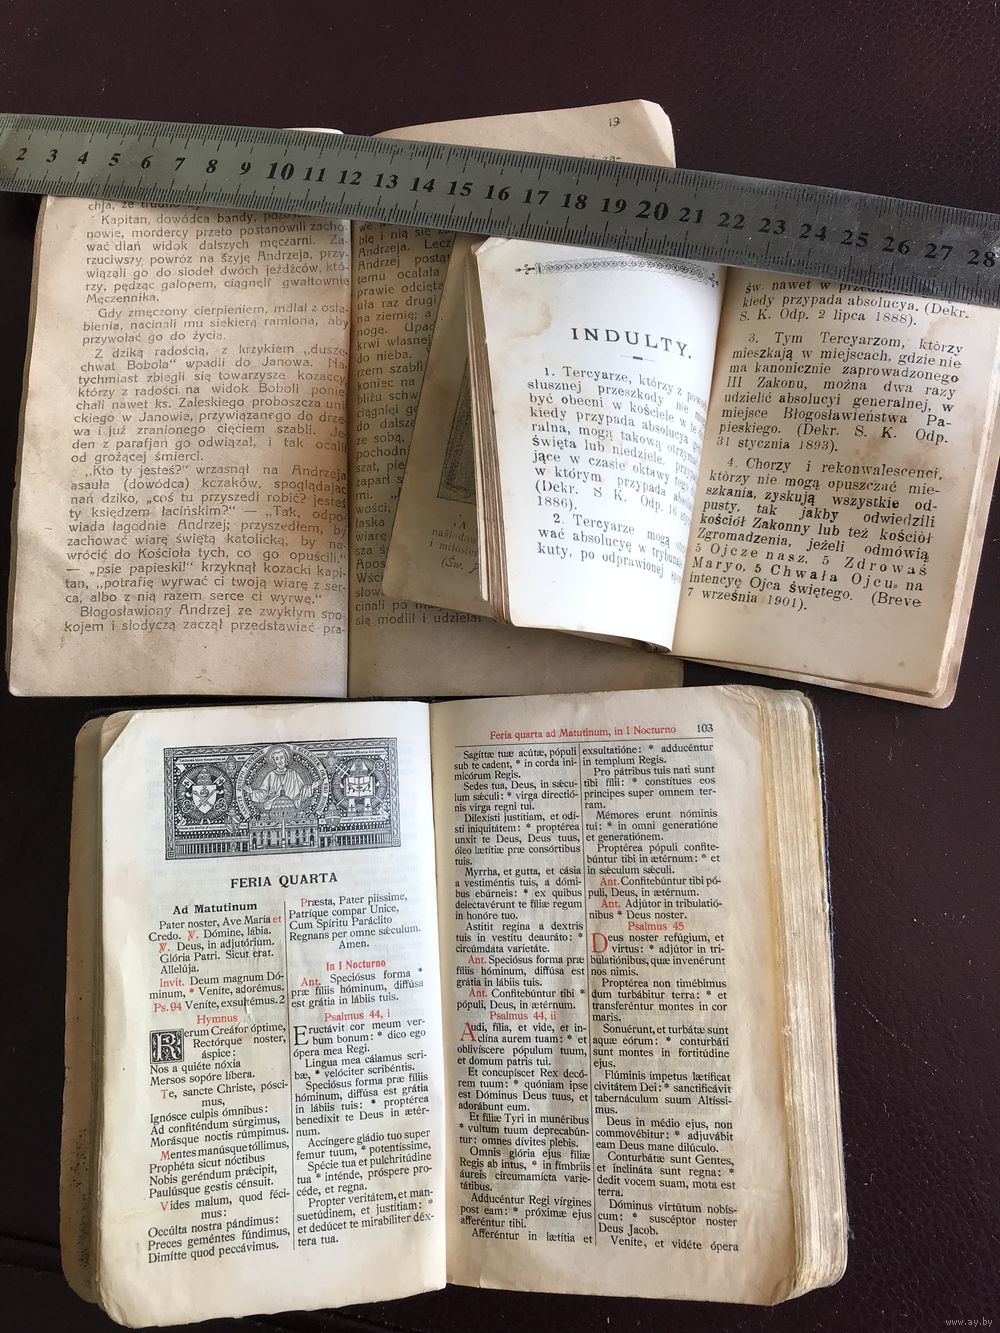 2 3 4 5 6 7 8 9 10 11 12 13 14 15 16 17 18 19 20 21 22 23 24 25 26 27 28
19
chja, że trudno
Kapitan, dowódca bandy,
nowie, mordercy przeto postanowili zacho-
wać dlań widok dalszych męczarni. Za-
rzuciwszy powróz na szyję Andrzeja, przy-
wiązali go do siodeł dwóch jeźdźców, któ-
rzy, pędząc galopem, ciągnęli gwałtownie
Męczennika.
Gdy zmęczony cierpieniem, mdlał z osła-
bienia, nacinali mu siekierą ramiona, aby
przywołać go do życia.
Z dziką radością, z krzykiem „dusze-
chwat Bobola“ wpadli do Janowa. Na-
tychmiast zbiegli się towarzysze kozaccy,
którzy z radości na widok Boboli ponie-
chali nawet ks. Zaleskiego proboszcza uni-
ckiego w Janowie, przywiązanego do drze-
wa i już zranionego cięciem szabli. Je-
den z parafjan go odwiązał, i tak ocalił
od grożącej śmierci.
„Kto ty jesteś?“ wrzasnął na Andrzeja
asauła (dowódca) kczaków, spoglądając
nań dziko, „coś tu przyszedł robić? jesteś
ty księdzem łacińskim?“ — „Tak, odpo-
wiada łagodnie Andrzej; przyszedłem, by
zachować wiarę świętą katolicką, by na-
wrócić do Kościoła tych, co go opuścili.“
— „psie papieski!“ krzyknął kozacki kapi-
tan, „potrafię wyrwać ci twoją wiarę z ser-
ca, albo z nią razem serce ci wyrwę.“
Błogosławiony Andrzej ze zwykłym spo-
kojem i słodyczą zaczął przedstawiać pra-
blę i nią się
Andrzeja. Lecz
Andrzej postan
temu ocalała
prawie odcięta
uła raz drugi
na ziemię; a
nogę. Upa
krwi własnej
do nieba.
rzem szabli
koniec na
bliżu schw
ciągnęli go
do dalsze
ze sobą,
pochodni
szat, pie
zaparł s
mi.
łaska
wiarę
sza ś
Apos
Wści
chow
cinali po
się modlił i udzielał
(Św.
INDULTY.
1. Tercyarze, którzy z powodu
słusznej przeszkody nie mogą
być obecni w kościele w te dni
kiedy przypada absolucya gene-
ralna, mogą takową otrzymać
święta lub niedziele, przypa
jące w czasie oktawy tego
w którym przypada abso
(Dekr. S K. Odp. 16
1886).
2. Tercyarze mogą otrzy
wać absolucyę w trybunale
kuty, po odprawionej spow
św. nawet w przed
kiedy przypada absolucya. (Dekr.
S. K. Odp. 2 lipca 1888).
3. Tym Tercyarzom, którzy
mieszkają w miejscach, gdzie nie
ma kanonicznie zaprowadzonego
III Zakonu, można dwa razy
udzielić absolucyi generalnej, w
miejsce Błogosławieństwa Pa-
pieskiego. (Dekr. S. K. Odp.
31 stycznia 1893).
4. Chorzy i rekonwalescenci,
którzy nie mogą opuszczać mie-
szkania, zyskują wszystkie od-
pusty, tak jakby odwiedzili
kościół Zakonny lub też kościół
Zgromadzenia, jeżeli odmówią
5 Ojcze nasz, 5 Zdrowaś
Maryo, 5 Chwała Ojcu, na
intencyę Ojca świętego. (Breve
7 września 1901).
FERIA QUARTA
Ad Matutinum
Pater noster, Ave María et
Credo. ℣. Dómine, lábia.
℣. Deus, in adjutórium.
Glória Patri. Sicut erat.
Allelúja.
Invit. Deum magnum Dó-
minum, * Veníte, adorémus.
Ps. 94 Veníte, exsultémus. 2
Hymnus
Rerum Creátor óptime,
Rectórque noster,
áspice:
Nos a quiéte nóxia
Mersos sopóre líbera.
Te, sancte Christe, pósci-
mus,
Ignósce culpis ómnibus:
Ad confiténdum súrgimus,
Morásque noctis rúmpimus.
Mentes manúsque tóllimus,
Prophéta sicut nóctibus
Nobis geréndum præcipit,
Paulúsque gestis cénsuit.
Vides malum, quod féci-
mus:
Occúlta nostra pándimus:
Preces geméntes fúndimus,
Dimítte quod peccávimus.
Præsta, Pater piíssime,
Patríque compar Unice,
Cum Spíritu Paráclito
Regnans per omne sæculum.
Amen.
In I Nocturno
Ant. Speciósus forma *
præ fíliis hóminum, diffúsa
est grátia in lábiis tuis.
Psalmus 44, i
Eructávit cor meum ver-
bum bonum: * dico ego
ópera mea Regi.
Lingua mea cálamus scri-
bæ, * velóciter scribéntis.
Speciósus forma præ fíliis
hóminum, diffúsa est grátia
in lábiis tuis: * proptérea
benedíxit te Deus in ætér-
num.
Accíngere gládio tuo super
femur tuum, * potentíssime,
Spécie tua et pulchritúdine
tua * inténde, próspere pro-
céde, et regna.
Propter veritátem, et man-
suetúdinem, et justítiam: *
et dedúcet te mirabíliter déx-
tera tua.
Feria quarta ad Matutinum, in I Nocturno 103
Sagíttæ tuæ acútæ, pópuli
sub te cadent, * in corda ini-
micórum Regis.
Sedes tua, Deus, in sǽcu-
lum sǽculi: * virga directió-
nis virga regni tui.
Dilexísti justítiam, et odí-
sti iniquitátem: * proptérea
unxit te Deus, Deus tuus,
óleo lætítiæ præ consórtibus
tuis.
Myrrha, et gutta, et cásia
a vestiméntis tuis, a dómi-
bus ebúrneis: * ex quibus
delectavérunt te fíliæ regum
in honóre tuo.
Astitit regína a dextris
tuis in vestítu deauráto: *
circúmdata varietáte.
Ant. Speciósus forma præ
fíliis hóminum, diffúsa est
grátia in lábiis tuis.
Ant. Confitebúntur tibi *
pópuli, Deus, in ætérnum.
Psalmus 44, ii
Audi, fília, et vide, et in-
clína aurem tuam: * et
oblivíscere pópulum tuum,
et domum patris tui.
Et concupíscet Rex decó-
rem tuum: * quóniam ipse
est Dóminus Deus tuus, et
adorábunt eum.
Et fíliæ Tyri in munéribus
* vultum tuum deprecabún-
tur: omnes dívites plebis.
Omnis glória ejus fíliæ
Regis ab intus, * in fímbriis
áureis circumamícta varie-
tátibus.
Adducéntur Regi vírgines
post eam: * próximæ ejus
afferéntur tibi.
Afferéntur in lætítia et
exsultatióne: * adducéntur
in templum Regis.
Pro pátribus tuis nati sunt
tibi fílii: * constítues eos
príncipes super omnem ter-
ram.
Mémores erunt nóminis
tui: * in omni generatióne
et generatiónem.
Proptérea pópuli confite-
búntur tibi in ætérnum: * et
in sæculum sæculi.
Ant. Confitebúntur tibi pó-
puli, Deus, in ætérnum.
Ant. Adjútor in tribulatió-
nibus * Deus noster.
Psalmus 45
Deus noster refúgium, et
virtus: * adjútor in tri-
bulatiónibus, quæ invenérunt
nos nimis.
Proptérea non timébimus
dum turbábitur terra: * et
transferéntur montes in cor
maris.
Sonuérunt, et turbátæ sunt
aquæ eórum: * conturbáti
sunt montes in fortitúdine
ejus.
Flúminis ímpetus lætíficat
civitátem Dei: * sanctificávit
tabernáculum suum Altíssi-
mus.
Deus in médio ejus, non
commovébitur: * adjuvábit
eam Deus mane dilúculo.
Conturbátæ sunt Gentes,
et inclináta sunt regna: *
dedit vocem suam, mota est
terra.
Dóminus virtútum nobís-
cum: * suscéptor noster
Deus Jacob.
Veníte, et vidéte ópera
www.ay.by